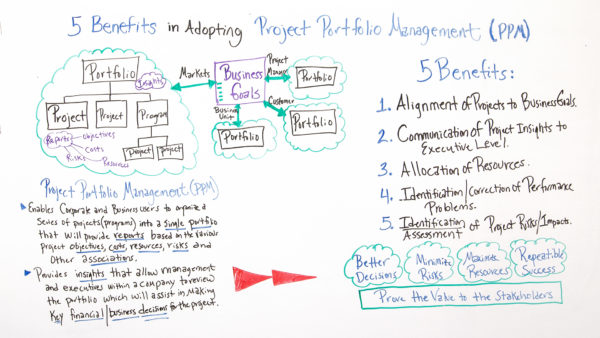 5 Benefits in Adopting Project Portfolio Management (PPM)
Portfolio
Insights
Project
Project
Program
Reports
Objectives
Costs
Risks
Resources
Project
Project
Markets
Business
Goals
Project
Manager
Portfolio
Customer
Portfolio
Business
Unit
Portfolio
Project Portfolio Management (PPM)
Enables Corporate and Business users to organize a
Series of projects (programs) into a single portfolio
that will provide reports based on the various
project objectives, costs, resources, risks and
Other associations.
Provides insights that allow management
and executives within a company to review
the portfolio which will assist in making
Key financial/business decisions for the project.
5 Benefits:
1. Alignment of Projects to Business Goals.
2. Communication of Project Insights to
Executive Level.
3. Allocation of Resources.
4. Identification/Correction of Performance
Problems.
5. Identification of Project Risks/Impacts.
Assessment
Better
Decisions
Minimize
Risks
Resources
Repeatible
Success
Prove the Value to the Stakeholders